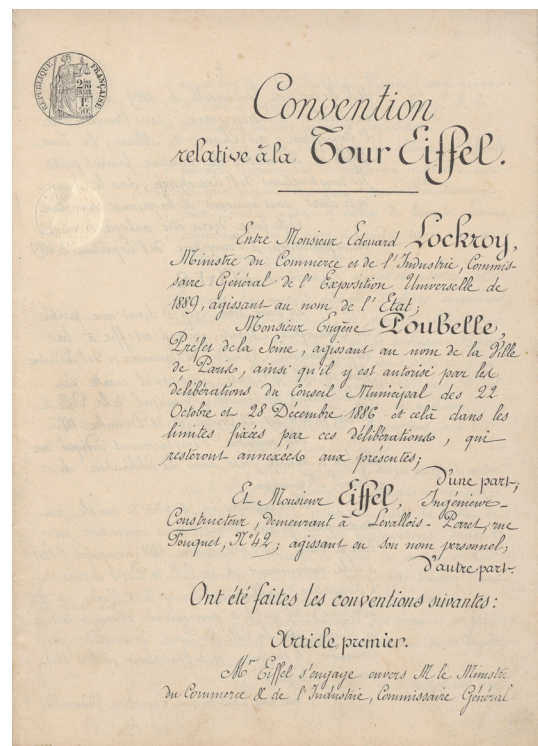 RÉPUBLIQUE FRANÇAISE
Convention
relative à la Tour Eiffel.
Entre Monsieur Edouard Lockroy,
Ministre du Commerce et de l'Industrie, Commis-
saire Général de l'Exposition Universelle de
1889, agissant au nom de l'Etat;
Monsieur Eugène Poubelle,
Préfet de la Seine, agissant au nom de la Ville
de Paris, ainsi qu'il y est autorisé par les
délibérations du Conseil Municipal des 22
Octobre et 28 Décembre 1886 et celà dans les
limites fixées par ces délibérations, qui
resteront annexées aux présentes;
D'une part;
Et Monsieur Eiffel, Ingénieur-
Constructeur, demeurant à Levallois-Perret, rue
Fouquet, N°42; agissant en son nom personnel,
D'autre part.
Ont été faites les conventions suivantes:
Article premier.
Mr Eiffel s'engage envers M le Ministre
du Commerce & de l'Industrie, Commissaire Général